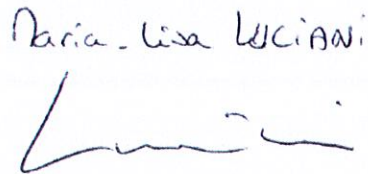 Maria-Lisa LUCIANI